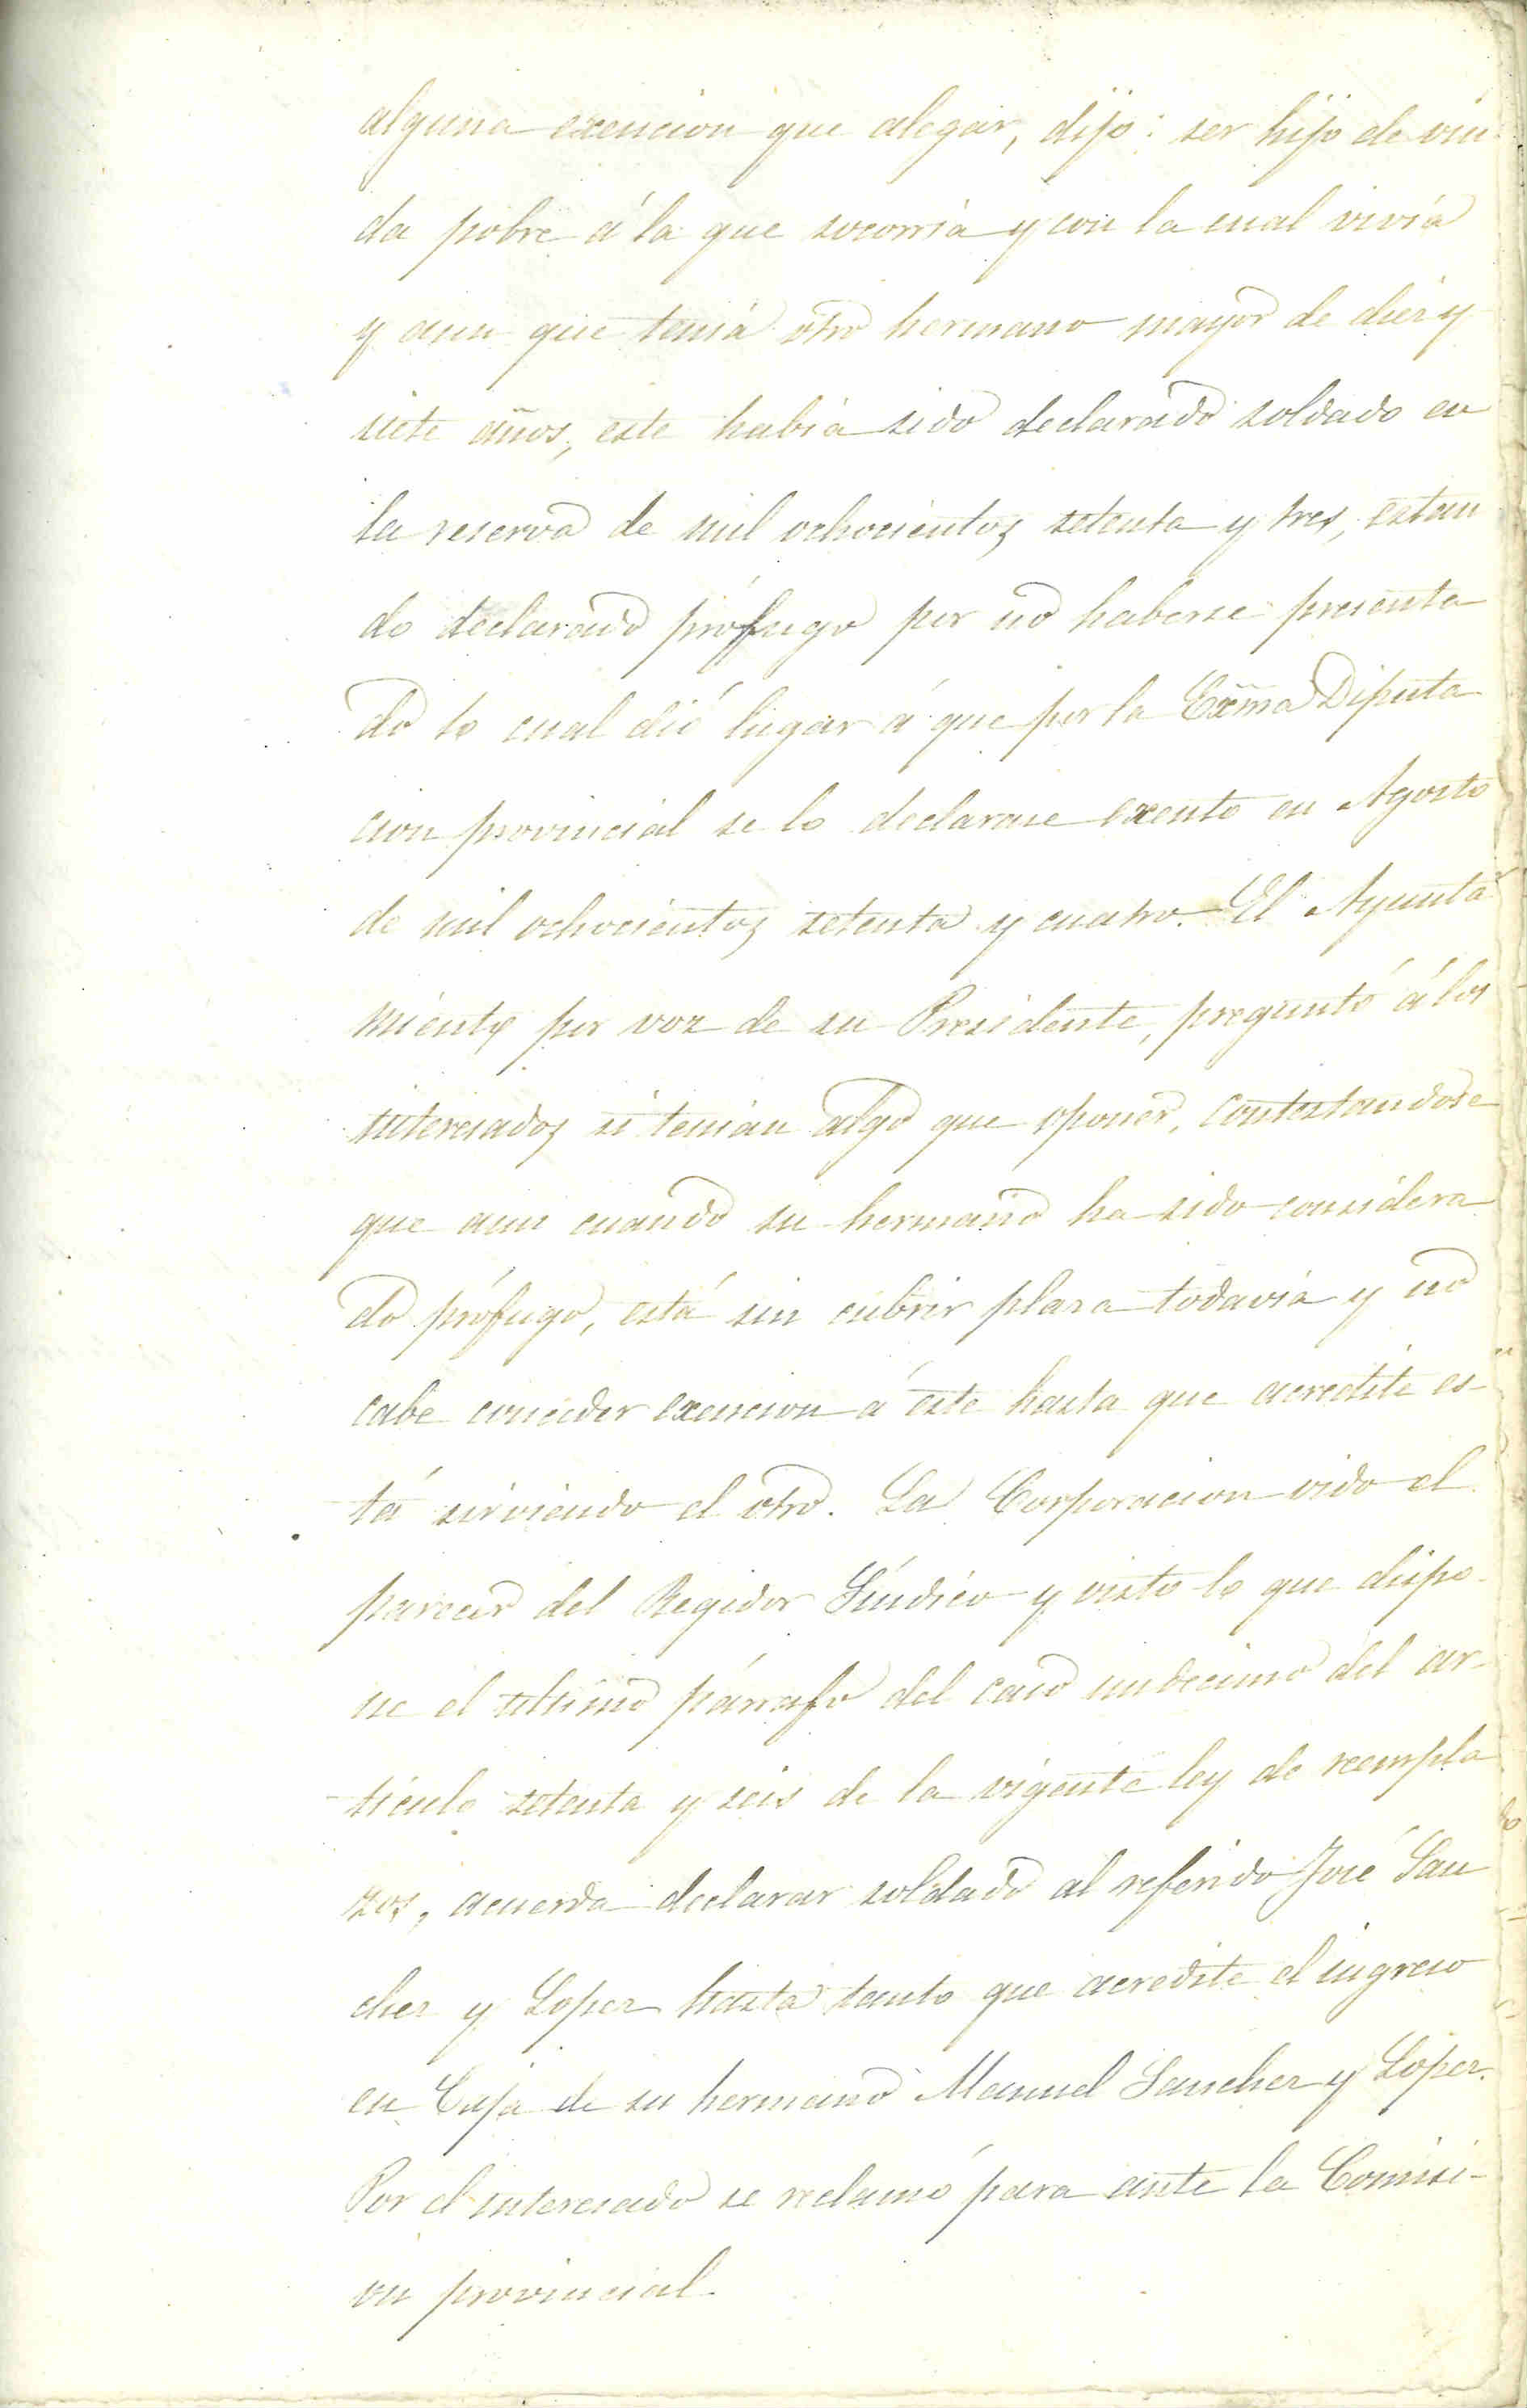 alguna exencion que alegar, dijo: ser hijo de viu
da pobre á la que socorria y con la cual vivia
y aun que tenia otro hermano mayor de diez y
siete años, este habia sido declarado soldado en
la reserva de mil ochocientos setenta y tres, estan
do declarado prófugo por no haberse presenta
do lo cual dió lugar á que por la Exma Diputa
cion provincial se lo declarase exento en Agosto
de mil ochocientos setenta y cuatro. El Ayunta
miento por voz de su Presidente, preguntó á los
interesados si tenian algo que oponer, contestandose
que aun cuando su hermano ha sido considera
do prófugo, está sin cubrir plaza todavia y no
cabe conceder exencion á este hasta que acredite es-
tá sirviendo el otro. La Corporacion oido el
parecer del Regidor Síndico y visto lo que dispo-
ne el último párrafo del caso undecimo del ar-
tículo setenta y seis de la vigente ley de reempla
zos, acuerda declarar soldado al referido José San
chez y Lopez hasta tanto que acredite el ingreso
en Caja de su hermano Manuel Sanchez y Lopez.
Por el interesado se reclamó para ante la Comisi-
on provincial.